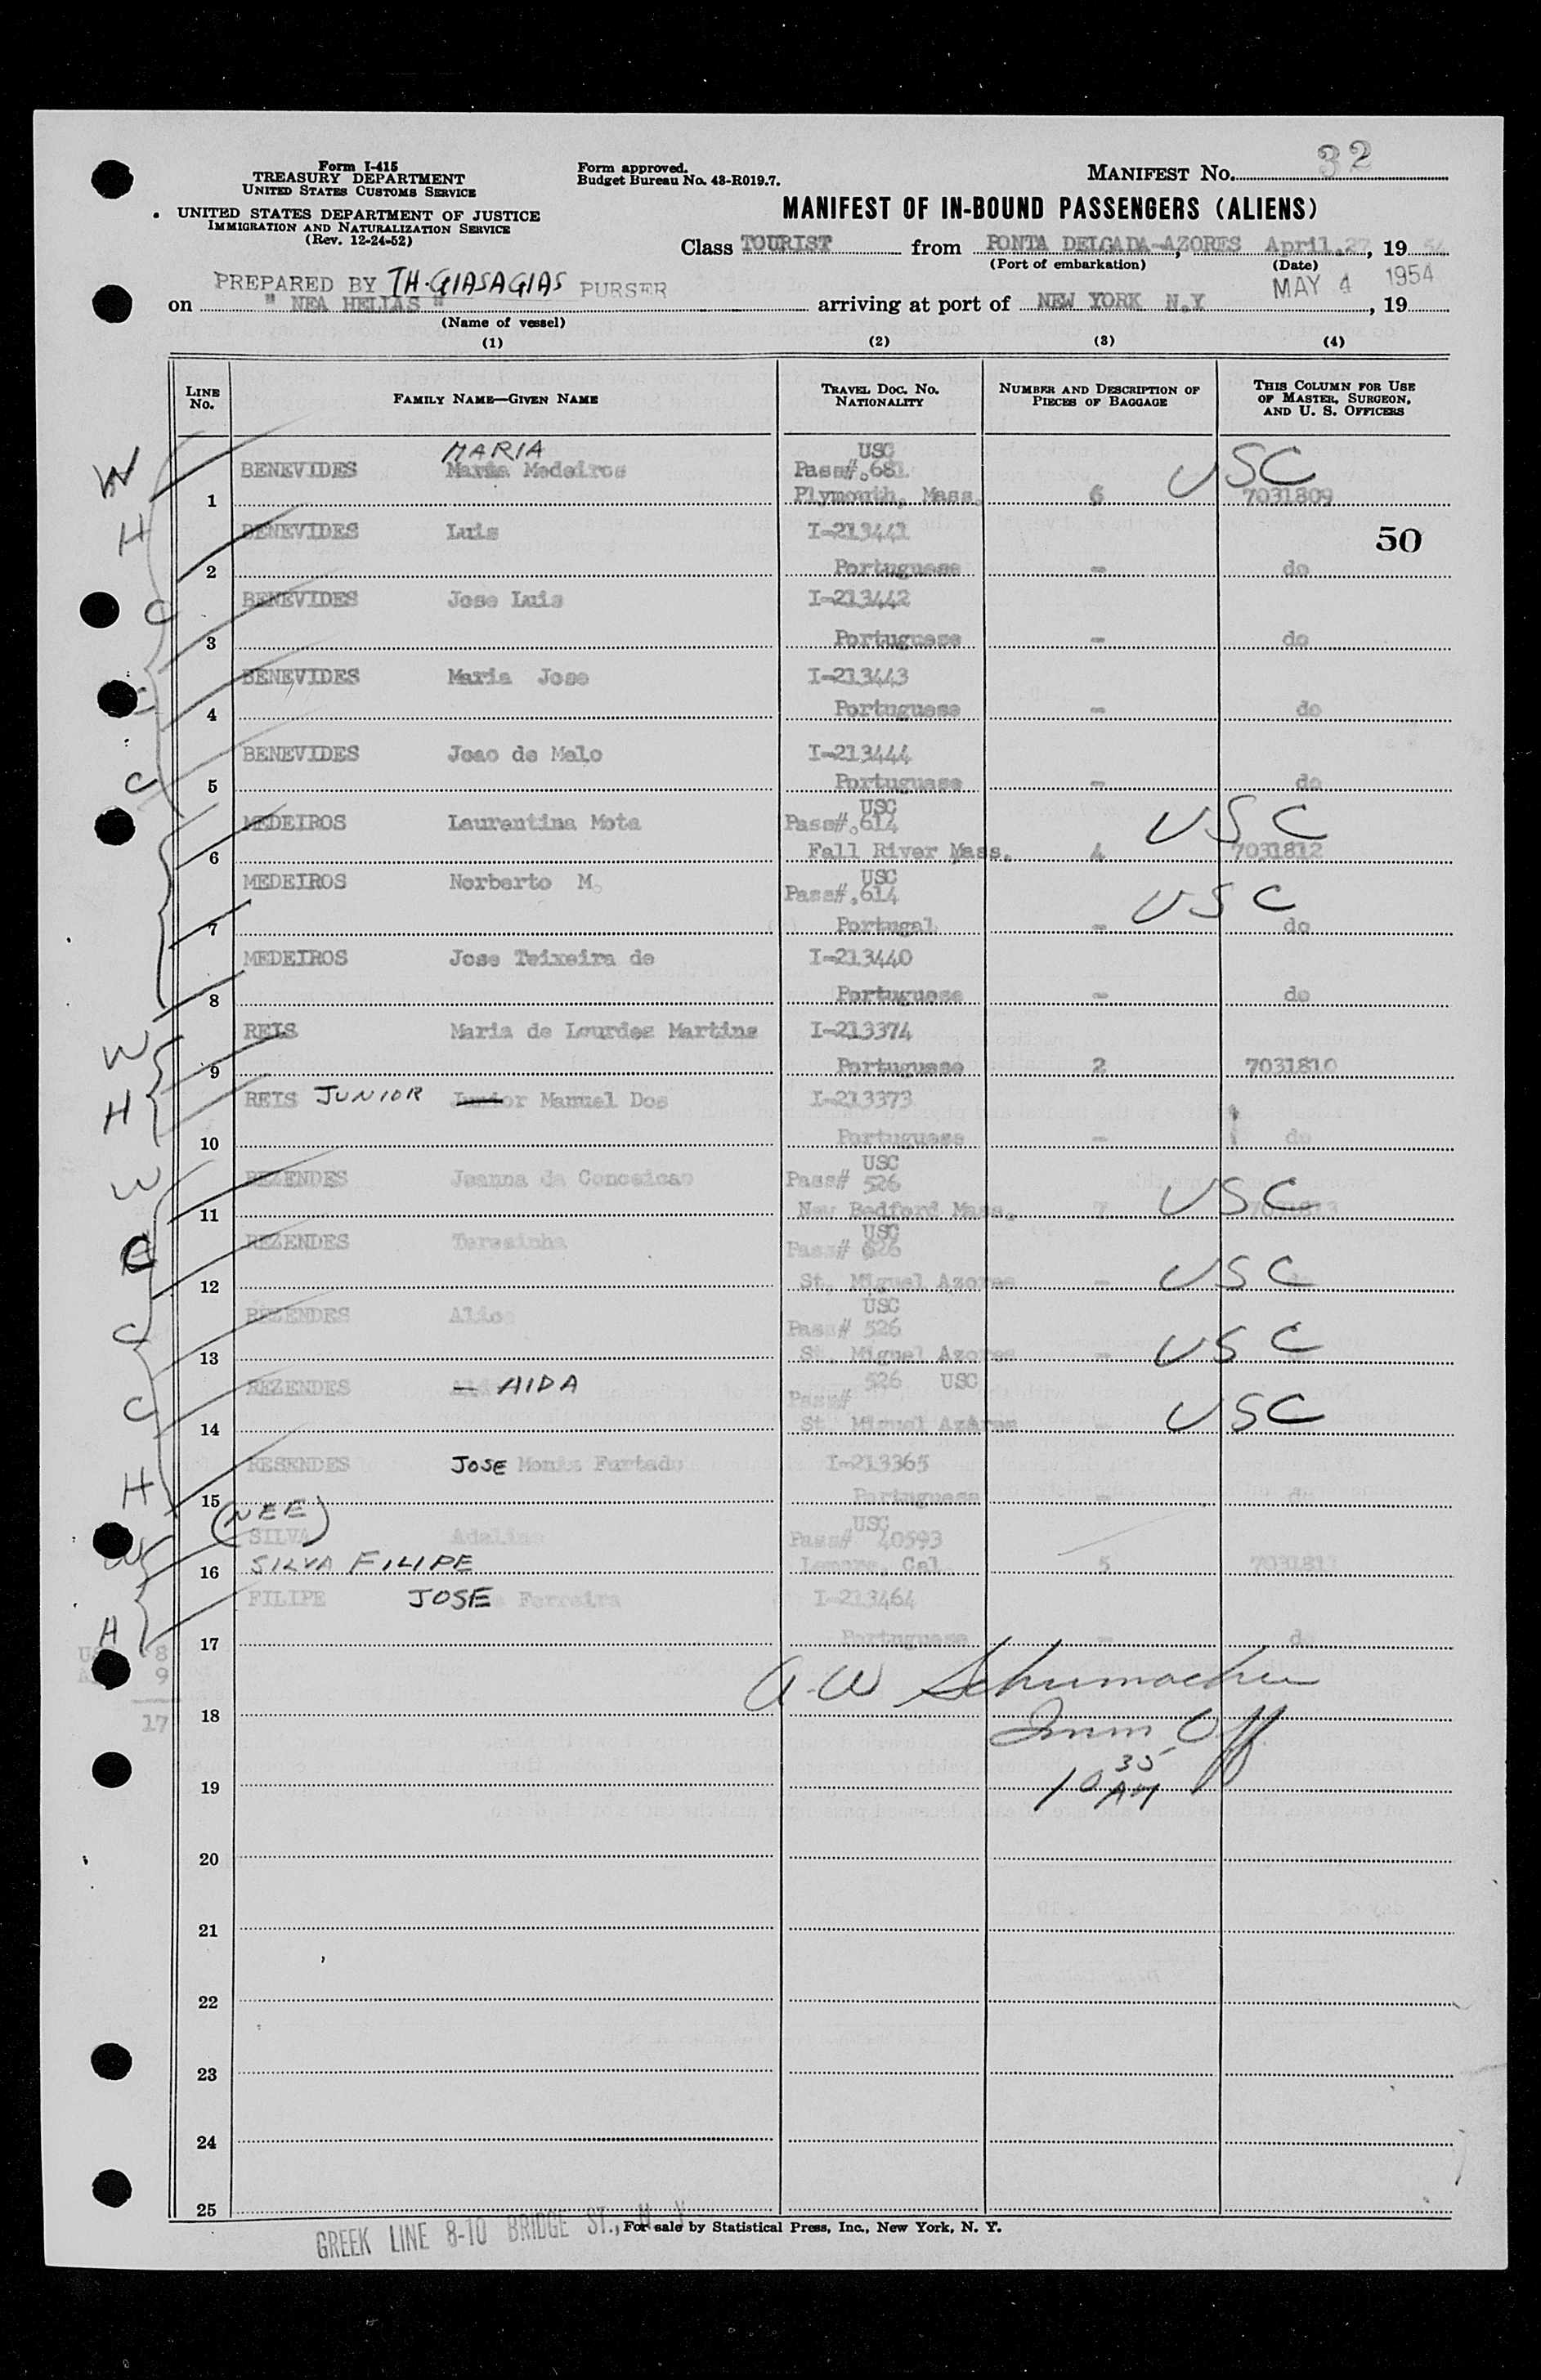 Form I-415
TREASURY DEPARTMENT
UNITED STATES CUSTOMS SERVICE
UNITED STATES DEPARTMENT OF JUSTICE
IMMIGRATION AND NATURALIZATION SERVICE
(Rev. 12-24-52)
Form approved.
Budget Bureau No. 43-R019.7.
MANIFEST No. 32
MANIFEST OF IN-BOUND PASSENGERS (ALIENS)
Class TOURIST from PONTA DELGADA-AZORES, April.27, 1954
(Port of embarkation) (Date)
PREPARED BY TH. GIASAGIAS PURSER
MAY 4 1954
on " NEA HELLAS " arriving at port of NEW YORK N.Y , 19
(Name of vessel)
(1) (2) (3) (4)
LINE No. FAMILY NAME—GIVEN NAME TRAVEL DOC. NO. NATIONALITY NUMBER AND DESCRIPTION OF PIECES OF BAGGAGE THIS COLUMN FOR USE OF MASTER, SURGEON, AND U. S. OFFICERS
MARIA USC
W BENEVIDES Maria Medeiros Pass#.681 USC
1 Plymouth, Mass. 6 7031809
H BENEVIDES Luis I-213441 50
2 Portuguese - do
C BENEVIDES Jose Luis I-213442
3 Portuguese - do
C BENEVIDES Maria Jose I-213443
4 Portuguese - do
BENEVIDES Joao de Melo I-213444
C 5 Portuguese - do
USC
MEDEIROS Laurentina Mota Pass#.614 USC
6 Fall River Mass. 4 7031812
USC
MEDEIROS Norberto M. Pass#.614 USC
7 Portugal - do
MEDEIROS Jose Teixeira de I-213440
8 Portuguese - do
W REIS Maria de Lourdes Martins I-213374
9 Portuguese 2 7031810
H REIS JUNIOR Junior Manuel Dos I-213373
10 Portuguese - do
USC
W REZENDES Jeanna da Conceicao Pass# 526 USC
11 New Bedford Mass. 7 7031813
USC
C REZENDES Teresinha Pass# 526
12 St. Miguel Azores - USC
USC
C REZENDES Alice Pass# 526
13 St. Miguel Azores - USC
526 USC
C REZENDES — AIDA Pass#
14 St. Miguel Azores - USC
H RESENDES JOSE Monis Furtado I-213365
15 Portuguese - do
(NEE) USC
W SILVA Adelina Pass# 40593
16 SILVA FILIPE Lemore, Cal. 5 7031811
FILIPE JOSE Ferreira I-213464
H 17 Portuguese - do
8
9
17
A. W Schumacher
18 Imm Off
19 10 35 AM
20
21
22
23
24
25
For sale by Statistical Press, Inc., New York, N. Y.
GREEK LINE 8-10 BRIDGE ST., N. Y.